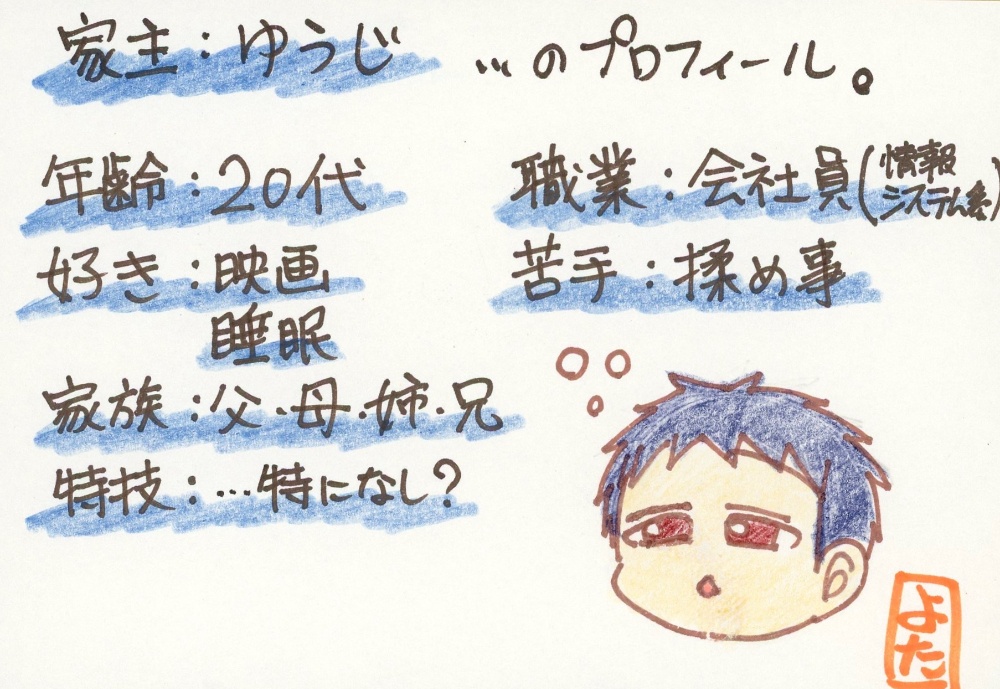 家主：ゆうじ …のプロフィール。
年齢：20代
職業：会社員(情報システム系)
好き：映画
睡眠
苦手：揉め事
家族：父・母・姉・兄
特技：…特になし？
よた